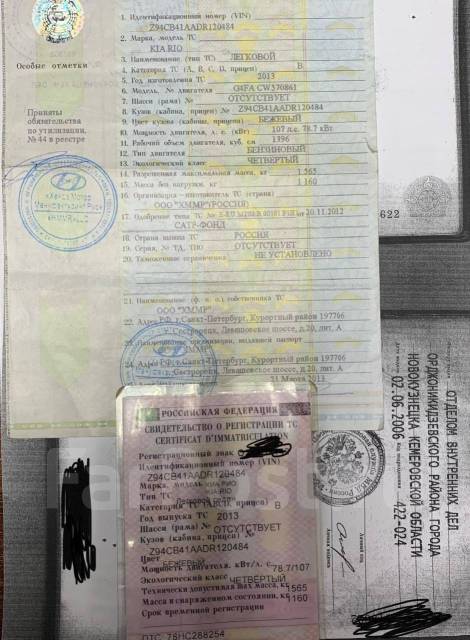 Особые отметки
Приняты
обязательства
по утилизации,
№44 в реестре
1. Идентификационный номер (VIN)
Z94CB41AADR120484
2. Марка, модель ТС
KIA RIO
3. Наименование (тип ТС) ЛЕГКОВОЙ
4. Категория ТС (А, В, С, D, прицеп) B
5. Год изготовления ТС 2013
6. Модель, № двигателя G4FA CW370861
7. Шасси (рама) № ОТСУТСТВУЕТ
8. Кузов (кабина, прицеп) № Z94CB41AADR120484
9. Цвет кузова (кабины, прицепа) БЕЖЕВЫЙ
10. Мощность двигателя, л. с. (кВт) 107 л.с. 78.7 кВт
11. Рабочий объем двигателя, куб. см 1396
12. Тип двигателя БЕНЗИНОВЫЙ
13. Экологический класс ЧЕТВЕРТЫЙ
14. Разрешенная максимальная масса, кг 1 565
15. Масса без нагрузки, кг 1 160
16. Организация—изготовитель ТС (страна)
ООО "ХММР"(РОССИЯ)
17. Одобрение типа ТС № от 20.11.2012
САТР-ФОНД
18. Страна вывоза ТС РОССИЯ
19. Серия, № ТД, ТПО ОТСУТСТВУЕТ
20. Таможенные ограничения НЕ УСТАНОВЛЕНО
21. Наименование (ф. и. о.) собственника ТС
ООО "ХММР"
22. Адрес РФ, г.Санкт-Петербург, Курортный район 197706
г. Сестрорецк, Левашовское шоссе, д.20, лит. А
23. Наименование организации, выдавшей паспорт
24. Адрес РФ, г.Санкт-Петербург, Курортный район 197706
г. Сестрорецк, Левашовское шоссе, д.20, лит. А
21 Марта 2013
622
РОССИЙСКАЯ ФЕДЕРАЦИЯ
СВИДЕТЕЛЬСТВО О РЕГИСТРАЦИИ ТС
CERTIFICAT D'IMMATRICULATION
Регистрационный знак
Идентификационный номер (VIN)
Z94CB41AADR120484
Марка, модель КИА РИО
KIA RIO
Тип ТС
Категория ТС (ABCD, прицеп) B
Год выпуска ТС 2013
Шасси (рама) № ОТСУТСТВУЕТ
Кузов (кабина, прицеп) №
Z94CB41AADR120484
Цвет БЕЖЕВЫЙ
Мощность двигателя, кВт/л. с. 78.7/107
Экологический класс ЧЕТВЕРТЫЙ
Технически допустимая max масса, кг 1565
Масса в снаряженном состоянии, кг 1160
Срок временной регистрации
ПТС 78НС288254
ОТДЕЛОМ ВНУТРЕННИХ ДЕЛ
ОРДЖОНИКИДЗЕВСКОГО РАЙОНА ГОРОДА
НОВОКУЗНЕЦКА КЕМЕРОВСКОЙ ОБЛАСТИ
02.06.2006
422-024
Личный код
Личная подпись